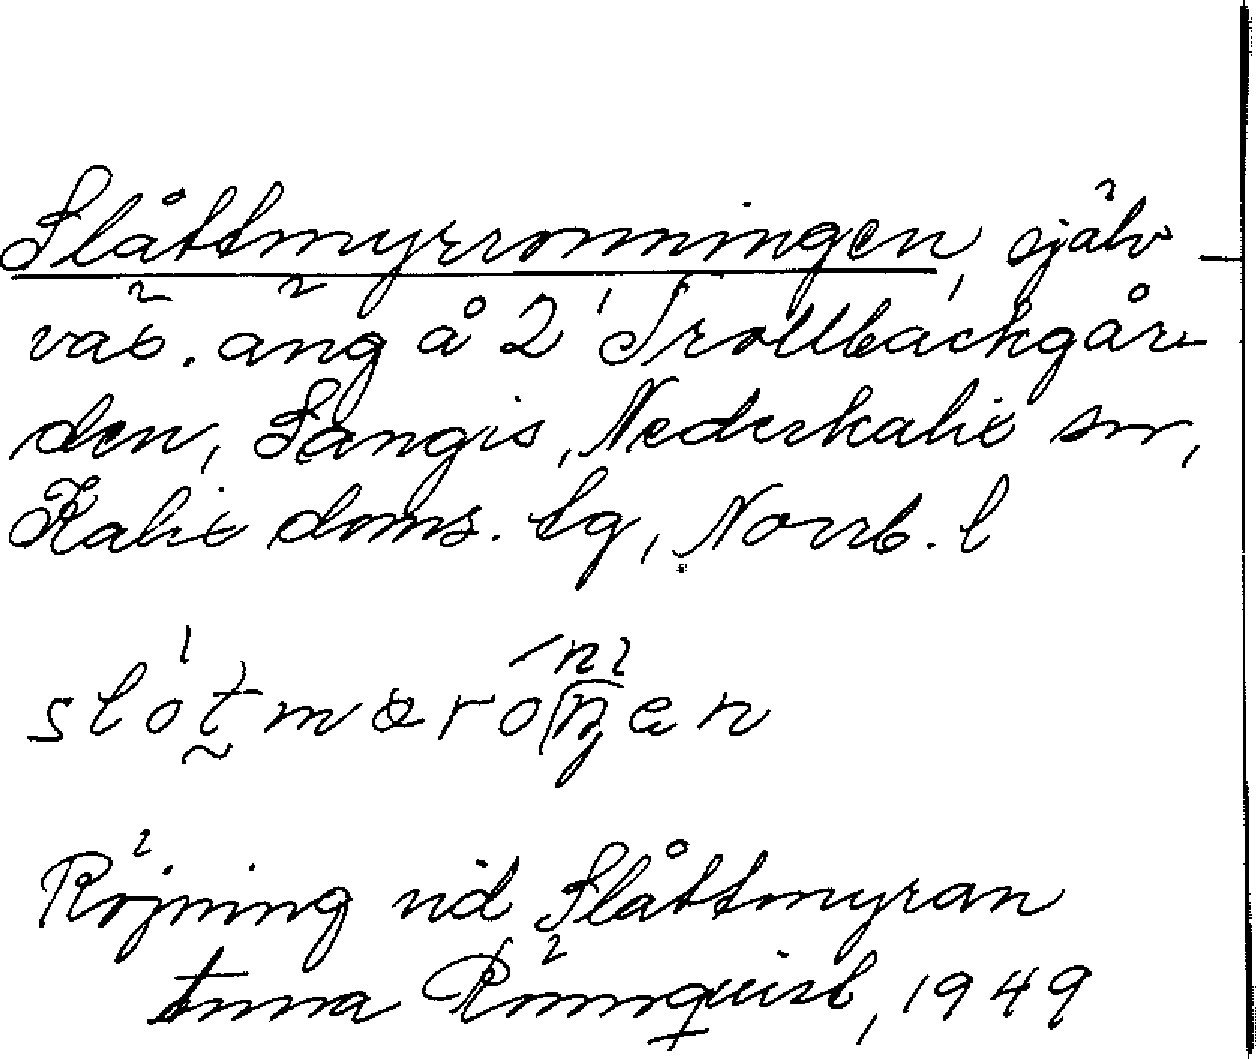 Slåttmyrronningen, själv-
väx. äng å 2 Trollbäckgår-
den, Sangis, Nederkalix sn,
Kalix doms. tg, Norrb. l
Röjning vid Slåttmyran
Anna Rönnquist, 1949